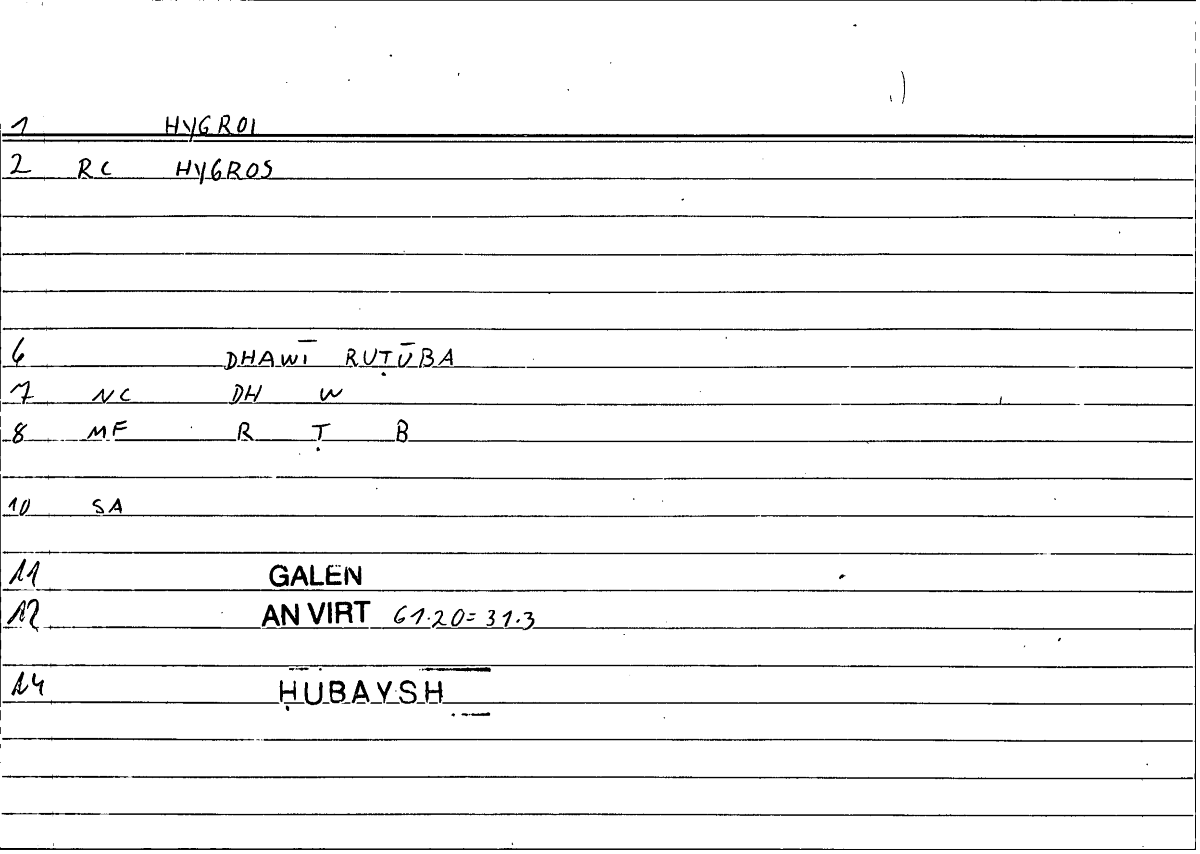 1 HYGROI
2 RC HYGROS
6 DHAWĪ RUṬŪBA
7 NC DH W
8 MF R Ṭ B
10 SA
11 GALEN
12 AN VIRT 61.20=31.3
14 ḤUBAYSH